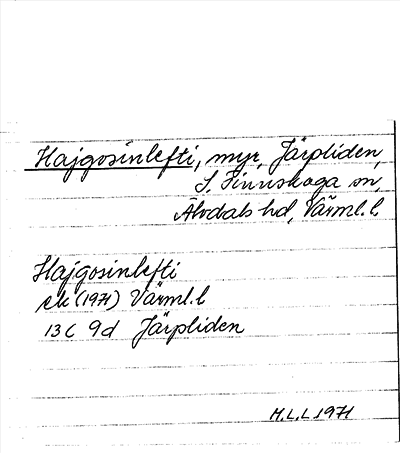 Hajgosinlefti, myr, Järpliden,
S. Finnskoga sn,
Älvdals hd, Värml. l.
Hajgosinlefti
ek (1971) Värml. l
13 C 9d Järpliden
M.L.L 1971